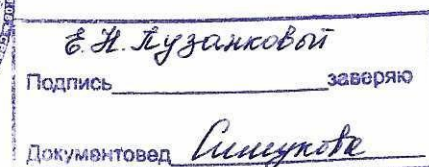 Е.Н. Лузанковой
Подпись заверяю
Документовед Симукова